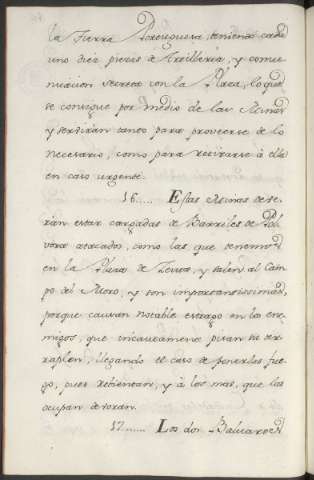 la Tierra Portuguesa, teniendo cada
uno diez piezas de Artilleria, y comu-
nicacion secreta con la Plaza, lo qual
se consigue por medio de las Minas
y servirán tanto para proveerse de lo
necesario, como para retirarse á ella
en caso urgente.
16...... Estas Minas debe-
rán estar cargadas de Barriles de Pol-
vora atacados, como las que tenemos
en la Plaza de Zeuta, y salen al Cam-
po del Moro, y son importantissimas,
porque causan notable estrago en los ene-
migos, que incautamente pisan su ter-
raplen, llegando el caso de ponerlas fue-
go, pues rebientan, y á los mas, que las
ocupan devoran.
17...... Los dos Baluartes